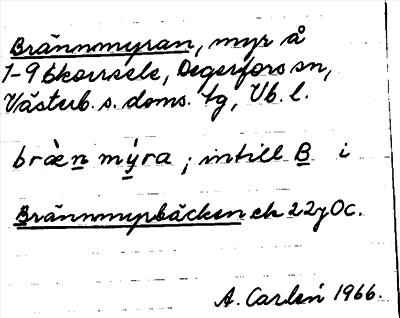 Brännmyran, myr å
1-9 Ekorrsele, Degerfors sn,
Västerb. s. doms. tg, Vb. l.
bræ̀n mýra ; intill B i
Brännmyrbäcken ek 22y0c.
A. Carlén 1966.